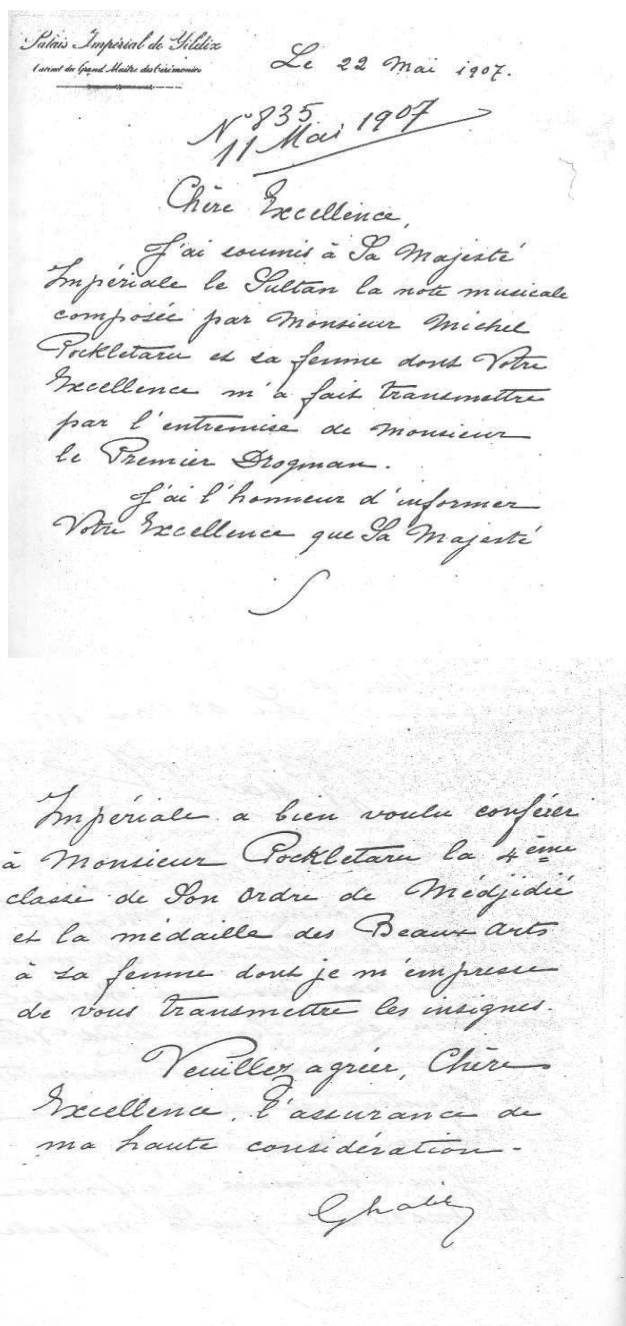 Palais Impérial de Yildiz
Cabinet du Grand Maître des Cérémonies
Le 22 Mai 1907.
N° 835
11 Mai 1907
Chère Excellence,
J'ai soumis à Sa Majesté
Impériale le Sultan la note musicale
composée par Monsieur Michel
Pockletaru et sa femme dont Votre
Excellence m'a fait transmettre
par l'entremise de Monsieur
le Premier Drogman.
J'ai l'honneur d'informer
Votre Excellence que Sa Majesté
Impériale a bien voulu conférer
à Monsieur Pockletaru la 4ème
classe de Son Ordre de Médjidié
et la médaille des Beaux Arts
à sa femme dont je m'empresse
de vous transmettre les insignes.
Veuillez agréer, Chère
Excellence, l'assurance de
ma haute considération.
Ghalib